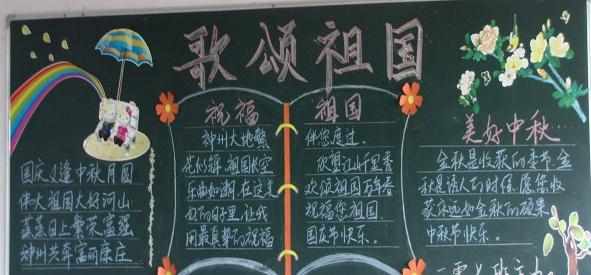 歌颂祖国
国庆又逢中秋月圆
伟大祖国大好河山
蒸蒸日上繁荣富强
神州共奔富丽康庄
祝福
神州大地繁
花似锦,祖国长空
乐曲如潮,在这美
好的日子里,让我
用最真挚的祝福
祖国
伴您度过。
眺望江山千里秀
欢颂祖国万年春
祝福您祖国.
国庆节快乐。
美好中秋…
金秋是收获的季节,金
秋是诱人的时候,愿您收
获永远如金秋的硕果
中秋节快乐。